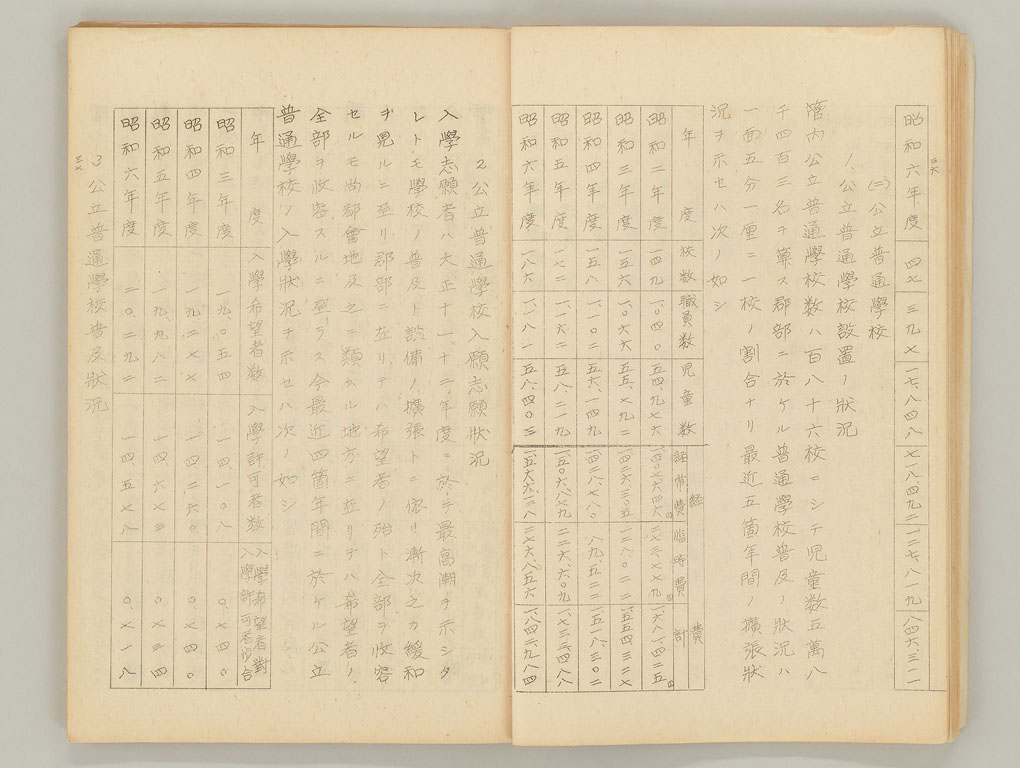 三六
昭和六年度 四七 三九七 一七、八四八 七一八、四九二 一二七、八一九 八四六、三一一
(二)公立普通學校
1 公立普通學校設置ノ狀況
管内公立普通學校数ハ百八十六校ニシテ児童数五萬八
千四百三名ヲ算ス郡部ニ於ケル普通學校普及ノ狀況ハ
一面五分一厘ニ一校ノ割合ナリ最近五箇年間ノ擴張狀
況ヲ示セハ次ノ如シ
年度 校数 職員数 児童数 経費 経常費 臨時費 計
昭和二年度 一四九 一、〇四〇 五四、九七六 一、四〇七、六四六円 二七三、七七九円 一、六八一、四二五円
昭和三年度 一五六 一、〇六六 五五、七九二 一、四二六、三〇五 一二八、〇二二 一、五五四、三二七
昭和四年度 一五八 一、一〇二 五六、一四九 一、四二八、七八〇 八九、五二二 一、五一八、三〇二
昭和五年度 一七二 一、一六二 五八、二一九 一、五〇六、八七九 二二六、六〇九 一、七三三、四八八
昭和六年度 一八六 一、一八一 五八、四〇三 一、五六六、一二八 二七六、八五六 一、八四二、九八四
2 公立普通學校入願志願狀況
入學志願者ハ大正十一、十二年度ニ於テ最高潮ヲ示シタ
レトモ學校ノ普及ト設備ノ擴張トニ依リ漸次之カ緩和
ヲ見ルニ至リ郡部ニ在リテハ希望者ノ殆ト全部ヲ收容
セルモ尚都會地及之ニ類スル地方ニ在リテハ希望者ノ
全部ヲ收容スルニ至ラス今最近四箇年間ニ於ケル公立
普通學校ノ入學狀況ヲ示セハ次ノ如シ
年度 入學希望者数 入學許可者数 入學希望者對入學許可者歩合
昭和三年度 一九、〇五四 一四、一〇八 〇、七四〇
昭和四年度 一九、二七七 一四、二六〇 〇、七四〇
昭和五年度 一九、九八二 一四、六七三 〇、七三四
昭和六年度 二〇、二九二 一四、五七八 〇、七一八
3 公立普通學校普及狀況
三七